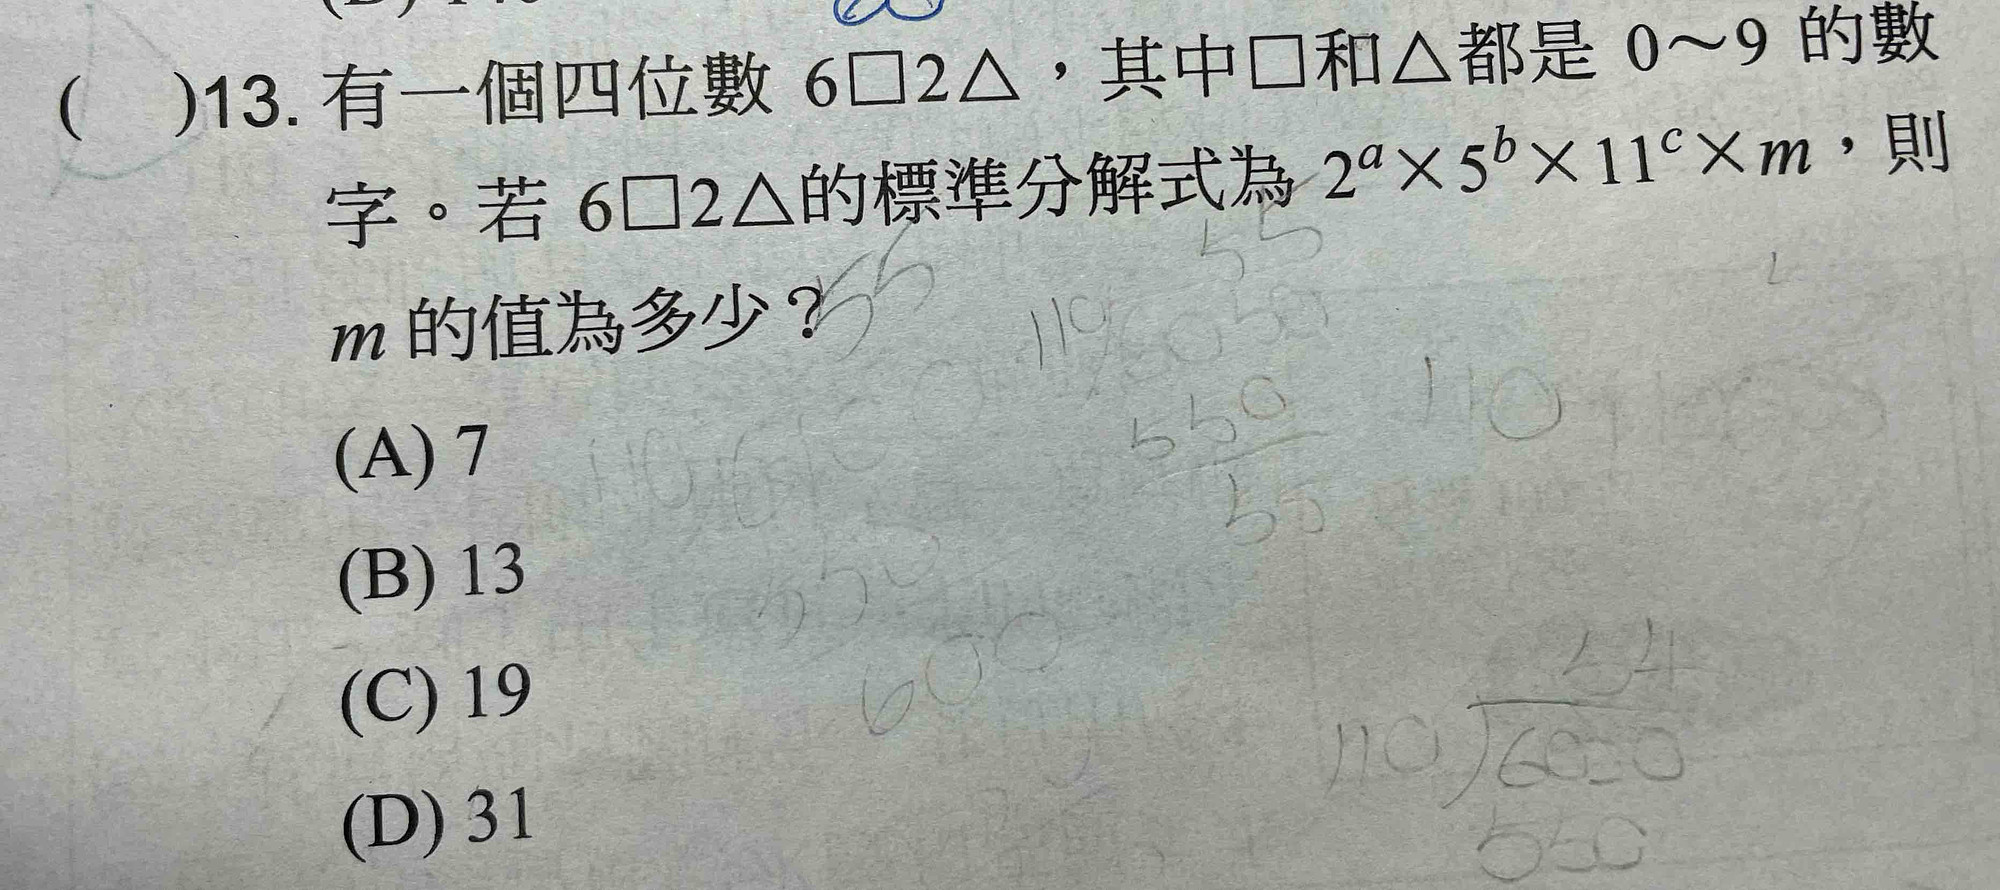 ( )13. 有一個四位數 6□2△，其中□和△都是 0～9 的數
字。若 6□2△的標準分解式為 2^a×5^b×11^c×m，則
m 的值為多少？
55
55
110
110
(A) 7
550
55
(B) 13
600
(C) 19
54
110
(D) 31
550